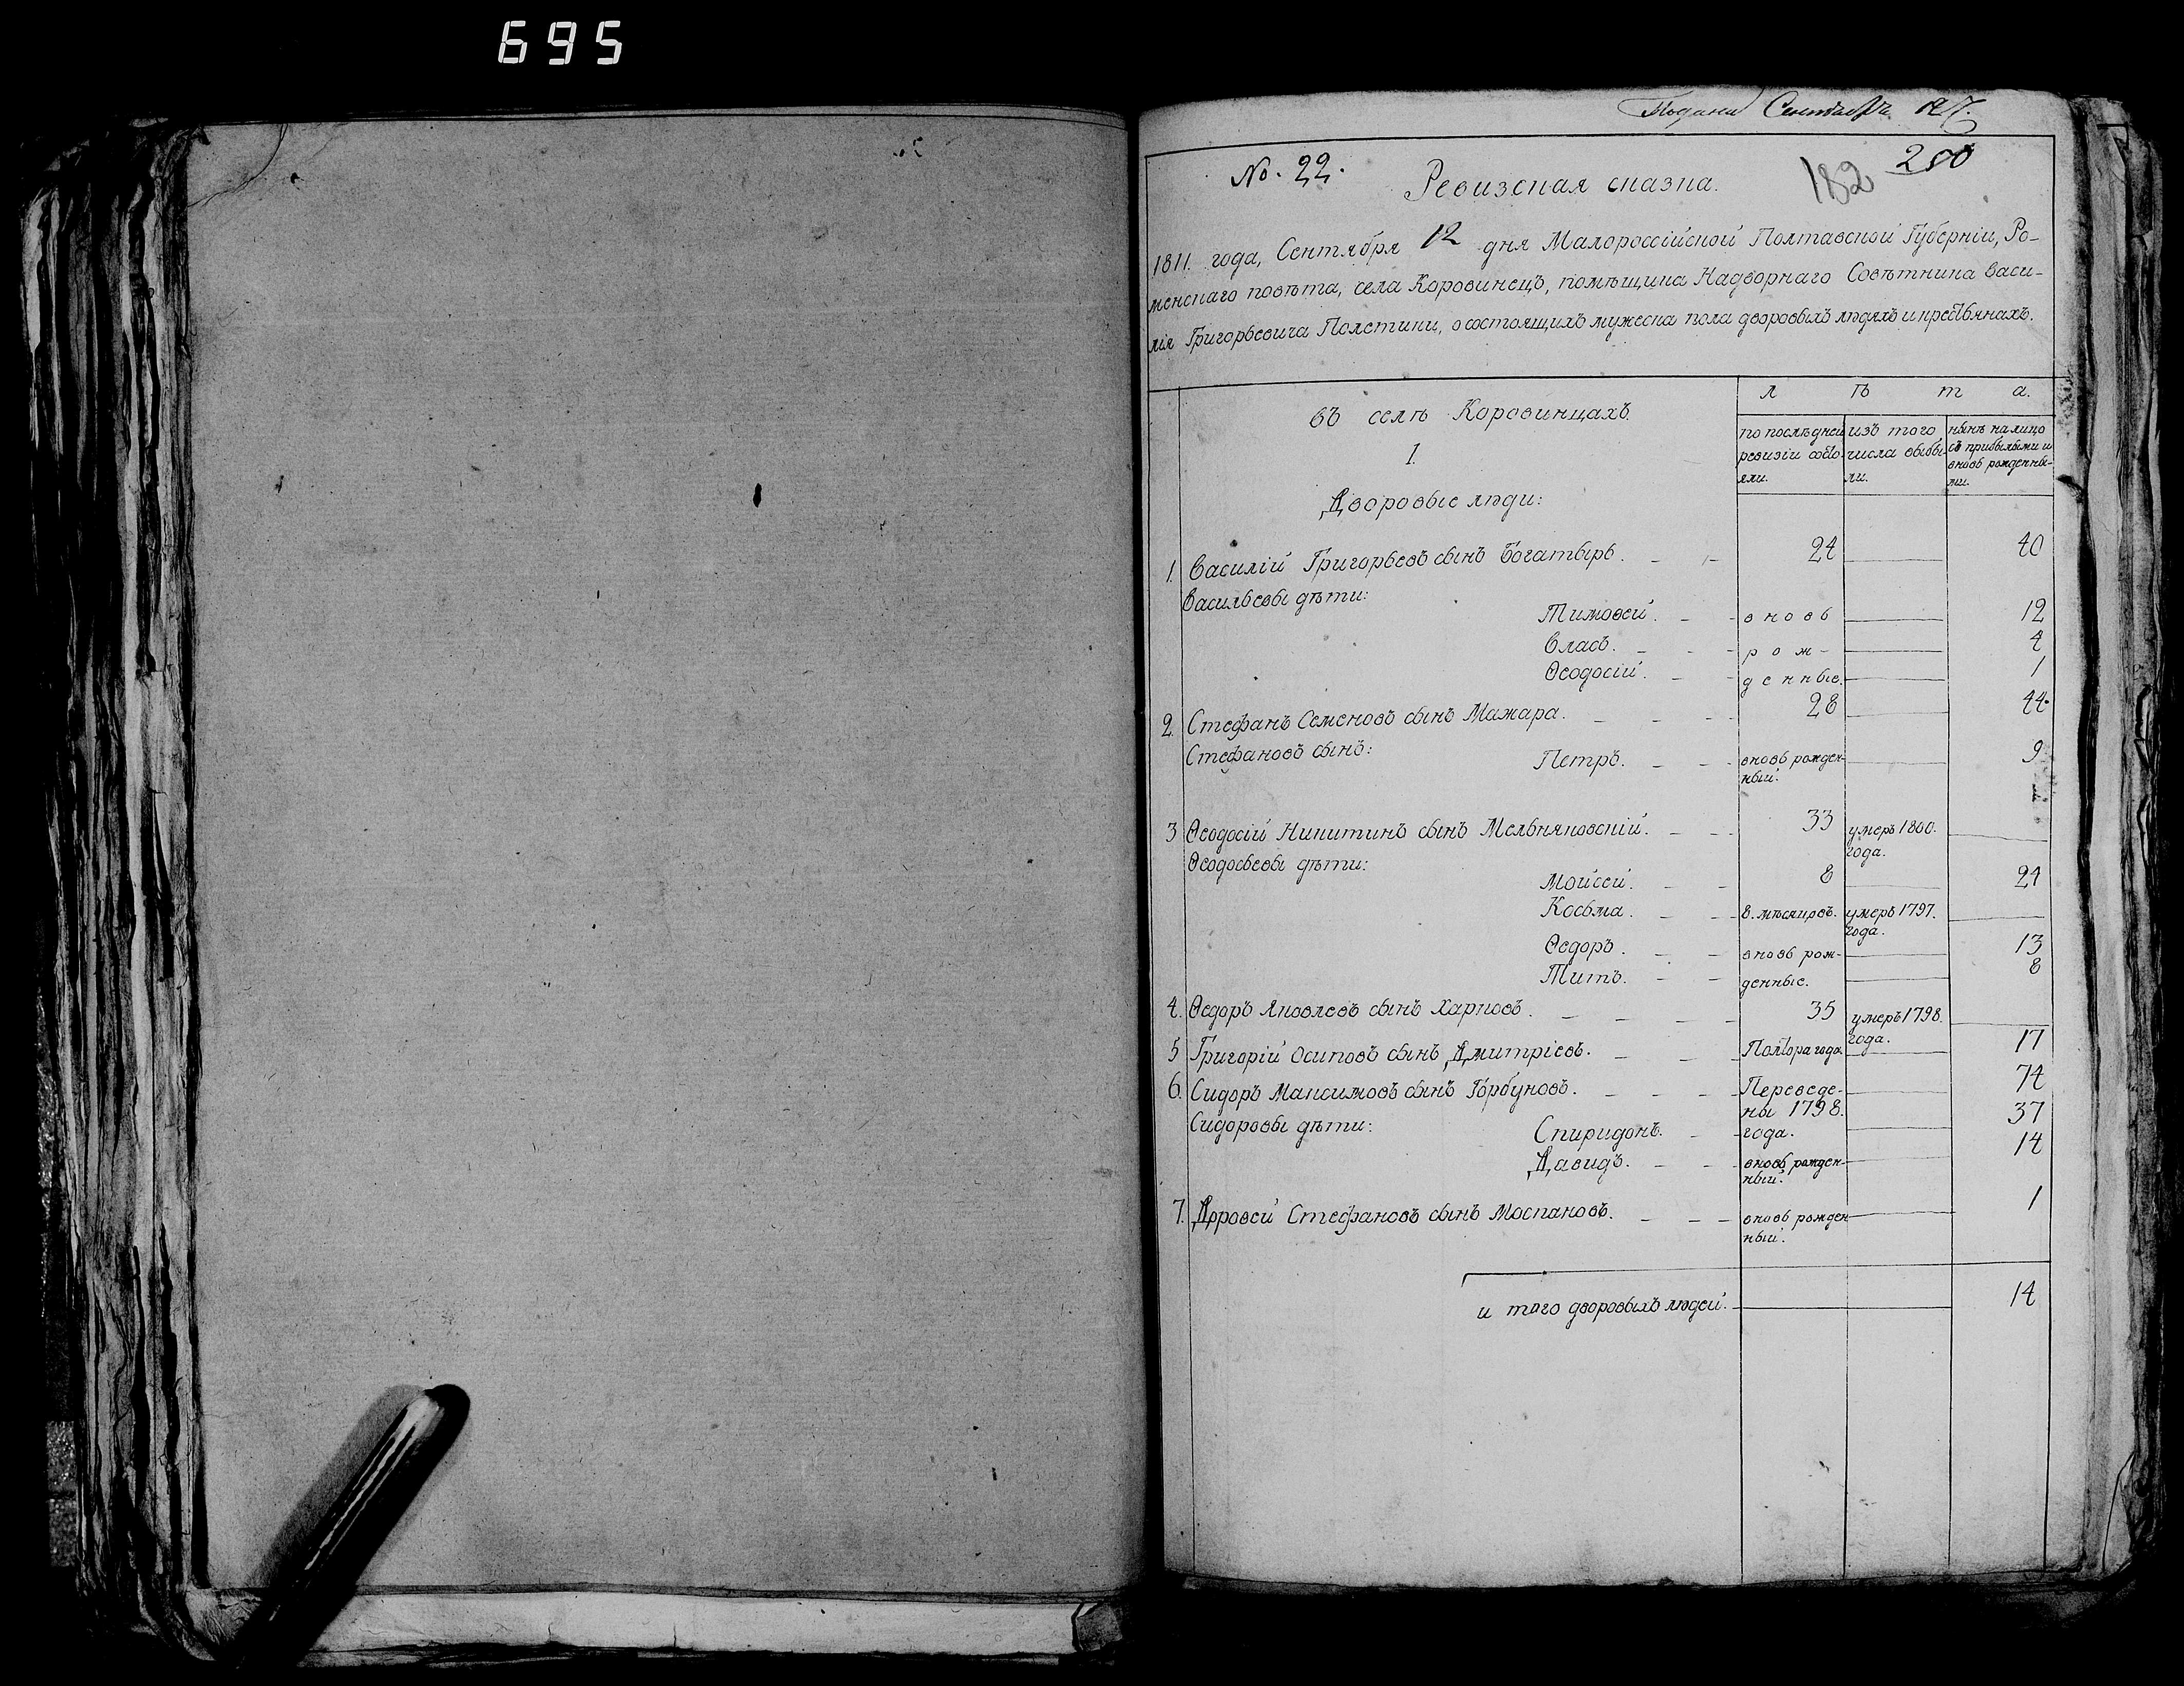 695
Подана Сентября 12/7.
No. 22.
182
250
Ревизская сказка.
1811. года, Сентября 12 дня Малороссійской Полтавской Губерніи, Ро-
менскаго повѣта, села Коровинецъ, помѣщика Надворнаго Совѣтника Васи-
лія Григорьевича Полетики, о состоящихъ мужеска пола дворовыхъ людяхъ и крестьянахъ.
въ селѣ Коровинцахъ.
л ѣ т а.
по послѣдней ревизіи состояли.
изъ того числа выбыли.
нынѣ на лицо съ прибылыми и вновь рожденными.
1.
Дворовые люди:
1. Василій Григорьевъ сынъ Богатырь. 24 40
Васильевы дѣти:
Тимовей. вновь 12
Власъ. рож- 4
Ѳеодосій. денные. 1
2. Стефанъ Семеновъ сынъ Мажара. 28 44.
Стефановъ сынъ:
Петръ. вновь рожден- 9
ный.
3 Ѳеодосій Никитинъ сынъ Мельняковскій. 33 умеръ 1800.
года.
Ѳеодосьевы дѣти:
Мойсей. 8 24
Косьма. 8. мѣсяцовъ. умеръ 1797.
года.
Ѳедоръ. вновь рож- 13
Титъ. денные. 8
4. Ѳедоръ Яковлевъ сынъ Харповъ. 35 умеръ 1798.
года.
5 Григорій Осиповъ сынъ Дмитріевъ. Полтора года. 17
6. Сидоръ Максимовъ сынъ Горбуновъ. Переведе- 74
ны 1798.
Сидоровы дѣти:
Спиридонъ. года. 37
Давидъ. вновь рожден- 14
ный.
7. Доровей Стефановъ сынъ Москановъ. вновь рожден 1
ный.
и того дворовыхъ людей. 14